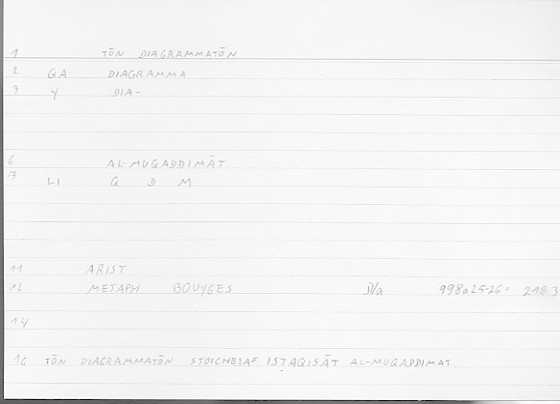 1 TŌN DIAGRAMMATŌN
2 GA DIAGRAMMA
3 Y DIA-
6 AL-MUQADDIMĀT
7 LI Q D M
11 ARIST
12 METAPH BOUYGES 998a25-26= 218.3
14
16 TŌN DIAGRAMMATŌN STOICHEIA ISTAQISĀT AL-MUQADDIMAT